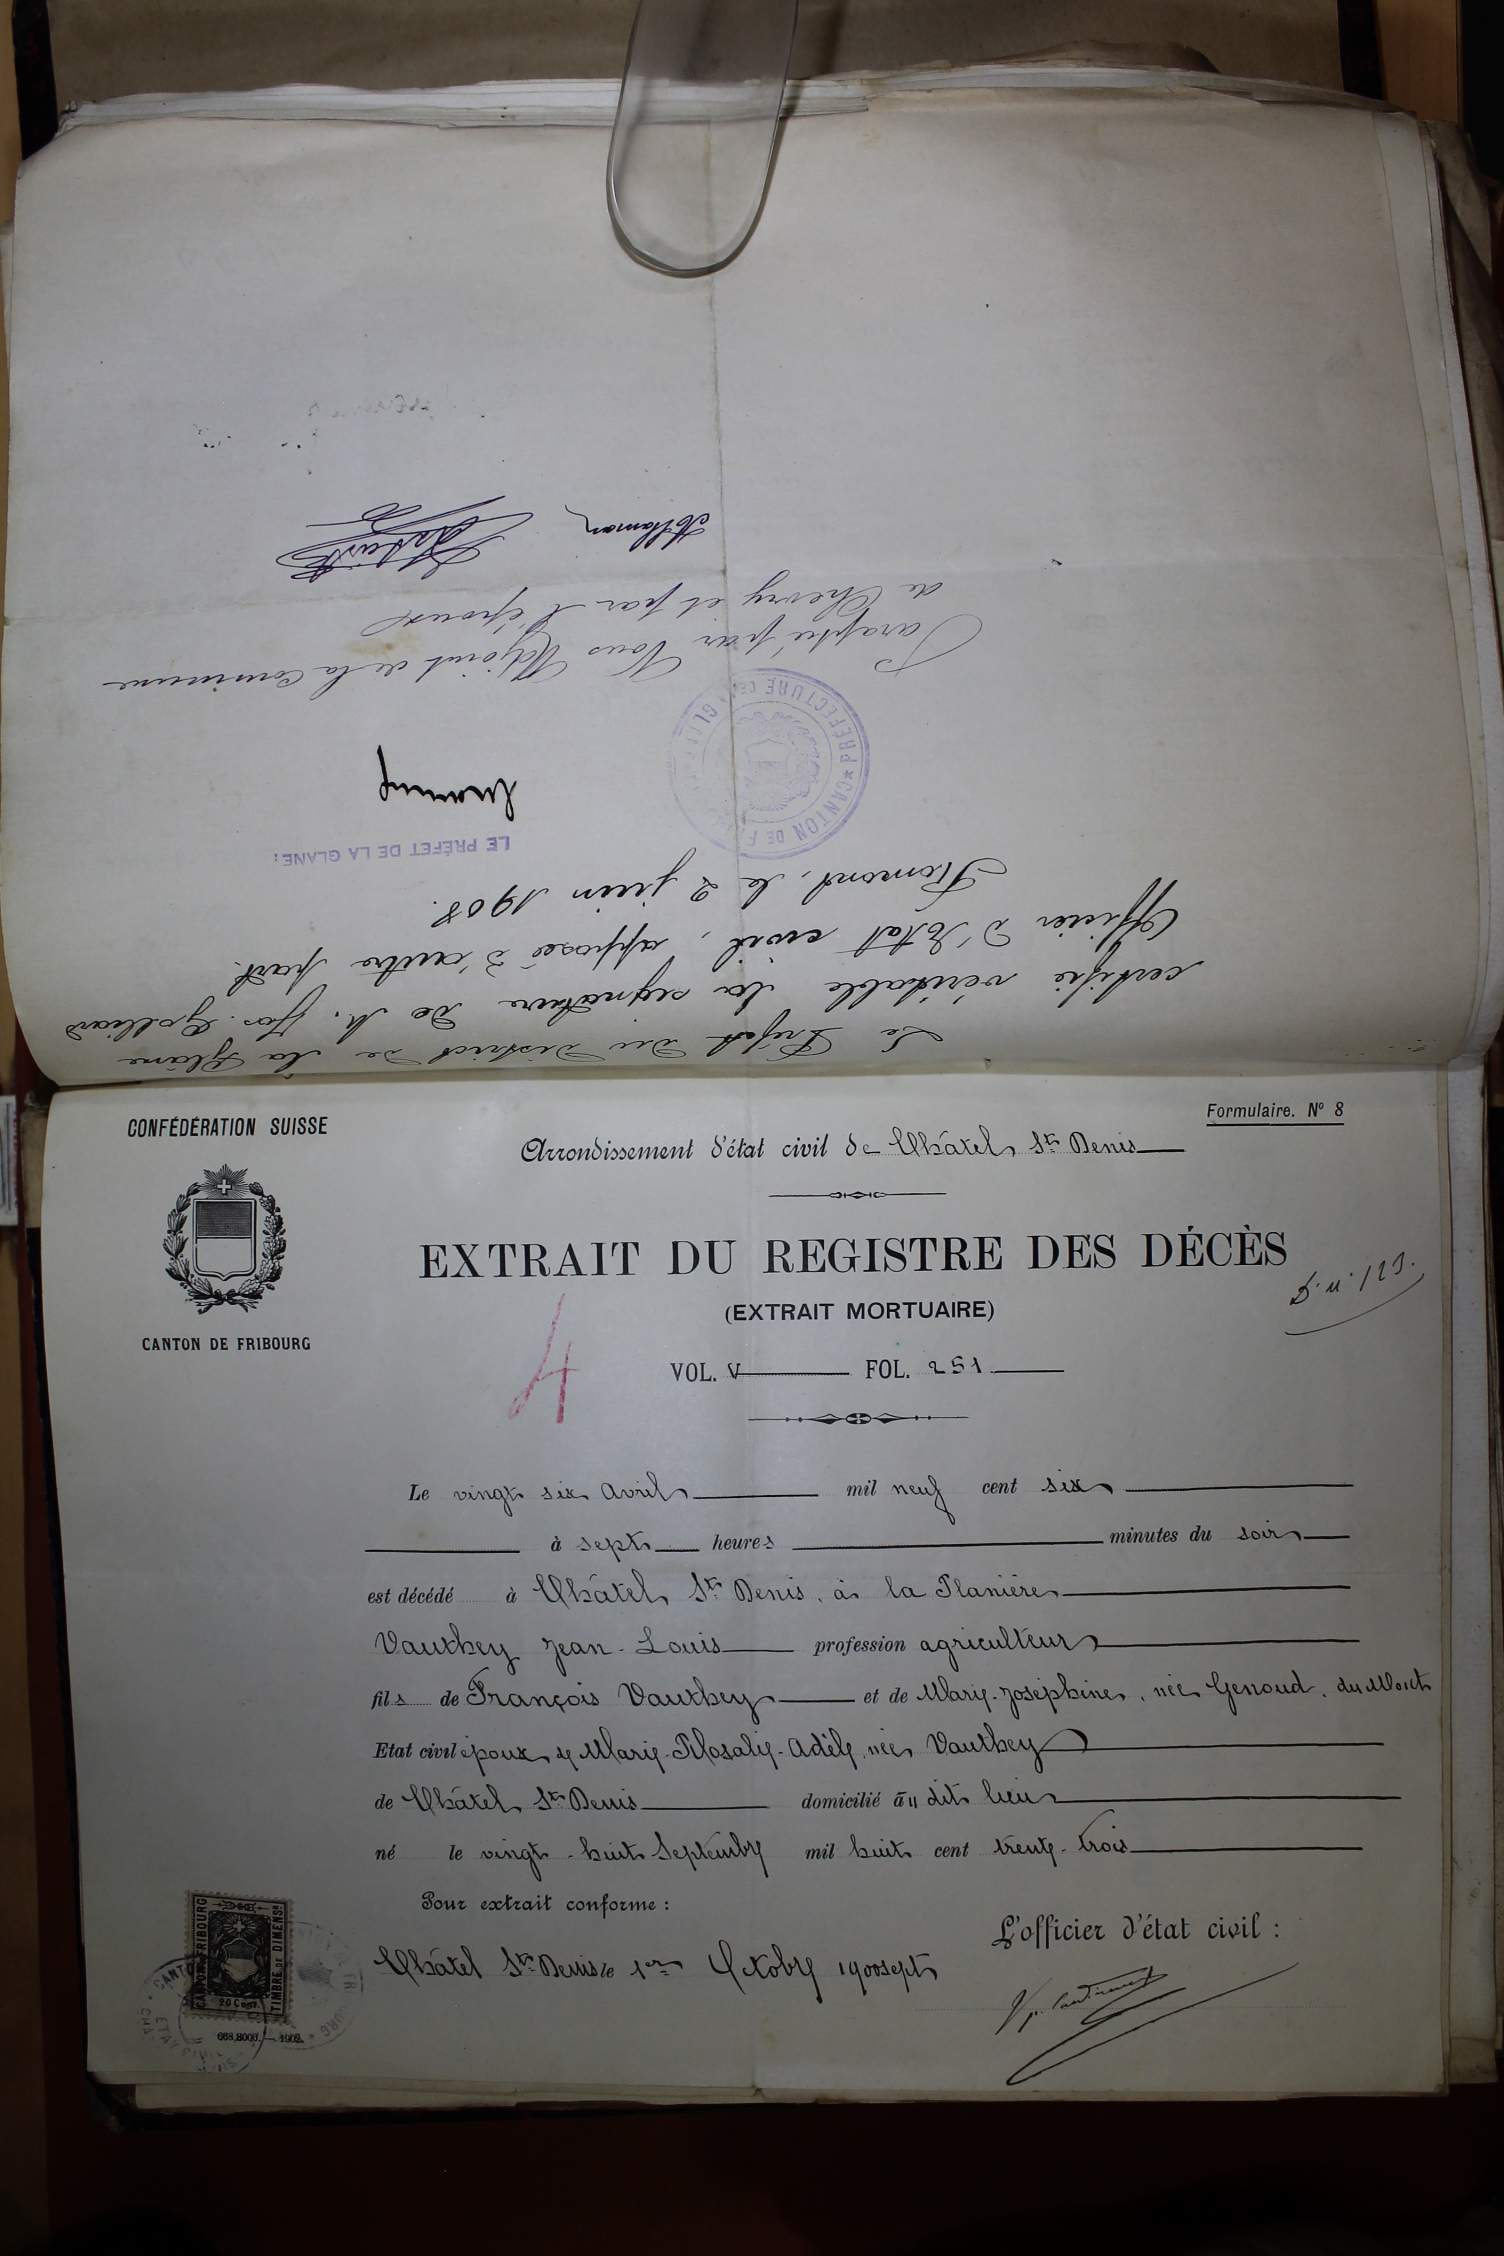 Le Préfet du District de la Glâne
certifie véritable la signature de M. Jos. Golliard
Officier d'Etat civil, apposée d'autre part.
Romont, le 2 juin 1908.
LE PRÉFET DE LA GLANE:
Paraphé par Nous Adjoint de la Commune
de Chevry et par l'époux
CONFÉDÉRATION SUISSE
Formulaire. Nº 8
Arrondissement d'état civil de Châtel St Denis
EXTRAIT DU REGISTRE DES DÉCÈS
(EXTRAIT MORTUAIRE)
CANTON DE FRIBOURG
4
VOL. V FOL. 251
Le vingt six Avril mil neuf cent six
à sept heures minutes du soir
est décédé à Châtel St Denis, à la Planière
Vauthey Jean-Louis profession agriculteur
fils de François Vauthey et de Marie-Joséphine, née Genoud, du Mort
Etat civil époux de Marie-Rosalie-Adèle, née Vauthey
de Châtel St Denis domicilié au dit lieu
né le vingt-huit Septembre mil huit cent trente-trois
Pour extrait conforme :
L'officier d'état civil :
Châtel St Denis le 1er Octobre 1900sept
CANTON FRIBOURG
TIMBRE DE DIMENSN
20 Cent.